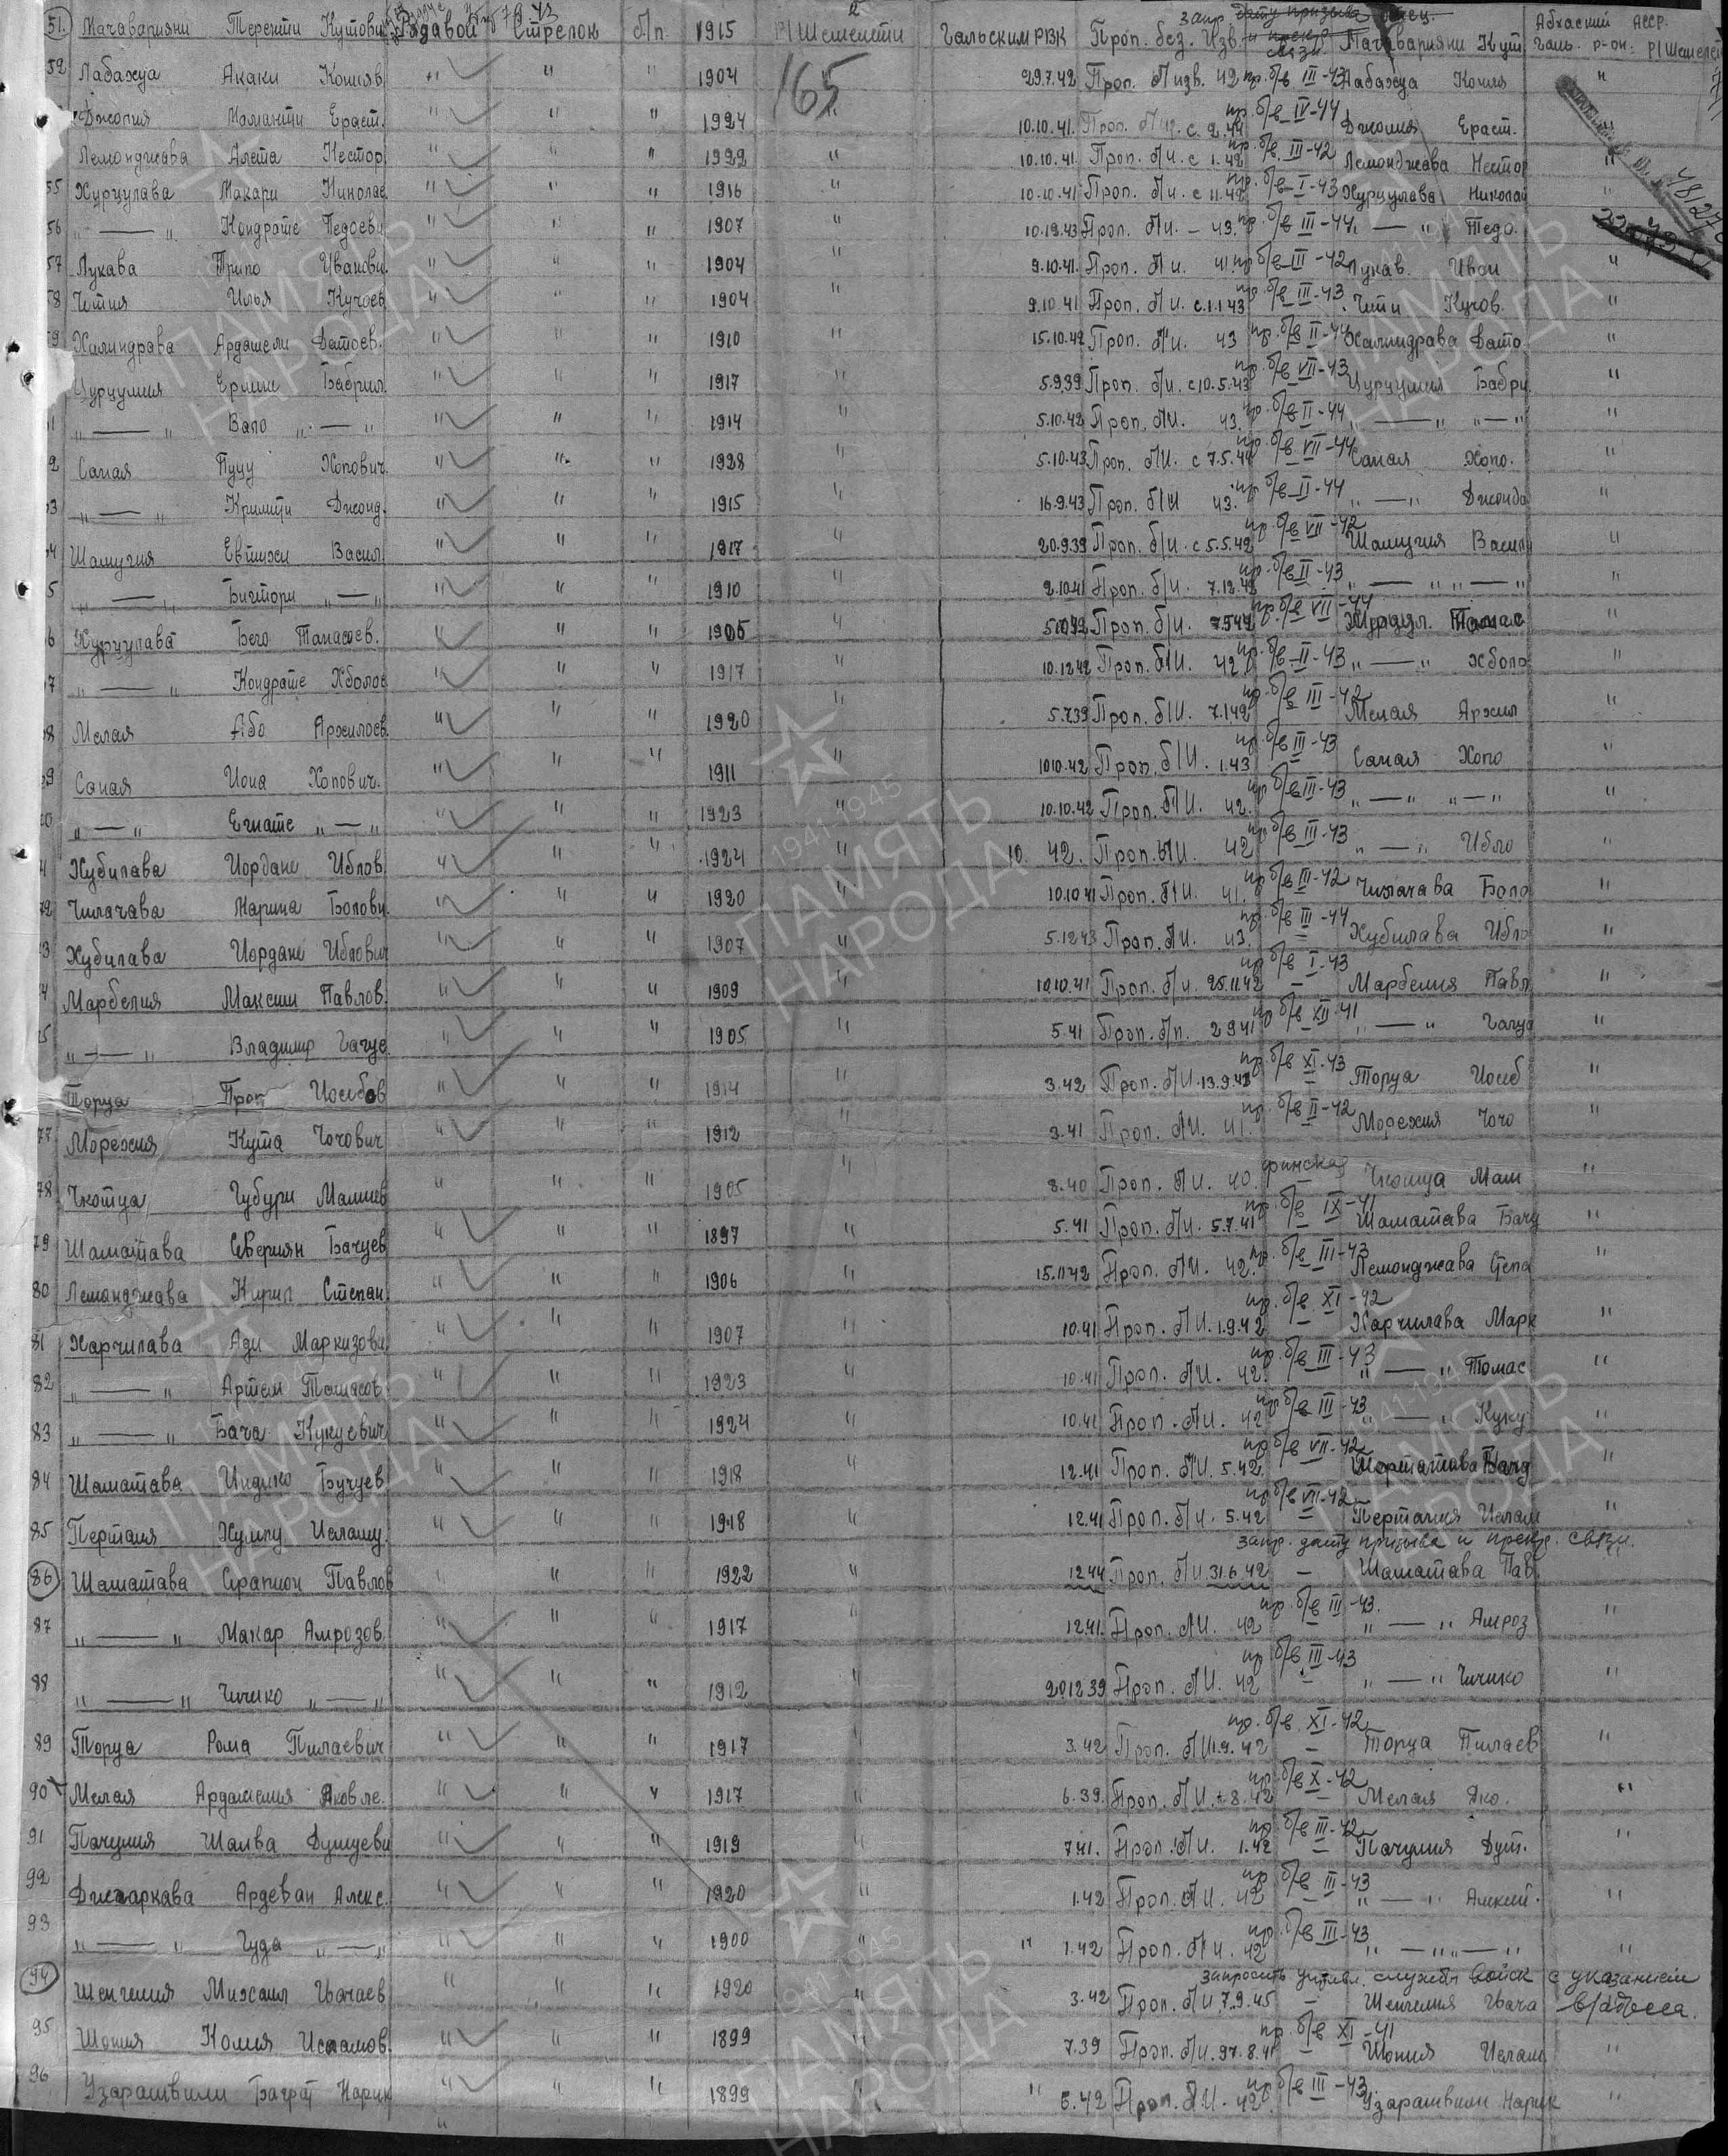 51. Мачаварияни Теренти Кутови Рядавой Стрелок б/п 1915 Р/Шешелети Гальским РВК Проп. без. Изв. Мачаварияни Кут. Абхаский АССР. Галь. р-он. Р/Шешелет
52 Лабахуа Акаки Кошяв. " " " 1904 29.7.42 Проп. б/изв. 42 пр. б/в III-43 Лабахуа Кошя "
165
Джопия Ераст. " " " 1924 " 10.10.41. Проп. б/и. с. 2.44 пр. б/в IV-44 Джопия Ераст.
Лемонджава Алета Нестор " " " 1922 " 10.10.41. Проп. б/и. с 1.42 пр. б/в III-42 Лемонджава Нестор "
55 Хурцулава Макари Николае " " " 1916 " 10.10.41 Проп. б/и. с 11.42 пр. б/в I-43 Хурцулава Николай "
56 " — " Кондрате Педоеви " " " 1907 " 10.12.43 Проп. б/и. - 43. пр. б/в III-44 " — " Тедо.
57 Лукава Трипо Иванови " " " 1904 " 9.10.41. Проп. б/и. 41 пр. б/в III-42 Лукав. Иван "
58 Чития Илья Кучоев " " " 1904 " 9.10.41 Проп. б/и. с.1.1.43 пр. б/в III-43 Чити Кучов. "
59 Халиндрава Ардашели Датоев. " " " 1910 " 15.10.42 Проп. б/и. 43 пр. б/в II-44 Халиндрава Дато. "
Цурцумия Бабрил. " " " 1917 " 5.9.39 Проп. б/и. с 10.5.43 пр. б/в VII-43 Цурцумия Бабри. "
" — " Вало " — " " " " 1914 " 5.10.42 Проп. б/и. 43. пр. б/в II-44 " — " " — " "
2 Саная Пуцу Хопович. " " " 1928 " 5.10.43 Проп. б/и. с 7.5.44 пр. б/в VII-44 Саная Хопо. "
3 " — " Джонд. " " " 1915 " 16.9.43 Проп. б/и 43. пр. б/в II-44 " — " Джондо "
Шамугия Евтихи Васил " " " 1917 " 20.9.39 Проп. б/и. с 5.5.42 пр. б/в VII-42 Шамугия Васили "
5 " — " Бигтори " — " " " " 1910 " 2.10.41 Проп. б/и. 7.12.42 пр. б/в II-43 " — " " — " "
6 Хурцулава Бего Танасоев. " " " 1905 " Проп. б/и. пр. б/в VII-44 "
7 " — " Кондрате Хболов " " " 1917 " 10.12.42 Проп. б/и. 42 пр. б/в II-43 " — " Хболо "
8 Мелая Або Архилоев. " " " 1920 " 5.7.39 Проп. б/и. 7.1.42 пр. б/в III-42 Мелая Архил "
9 Саная Иона Хопович. " " " 1911 " 10.10.42 Проп. б/и. 1.43 пр. б/в III-43 Саная Хопо "
" — " Егнате " — " " " " 1923 " 10.10.42 Проп. б/и. 42. пр. б/в III-43 " — " " — " "
Хубилава Иордане Иблов. " " " 1924 " 10. 42. Проп. б/и. 42 пр. б/в III-43 " — " Ибло "
72 Чилачава Марина Болови. " " " 1920 " 10.10.41 Проп. б/и. 41. пр. б/в III-42 Чилачава Боло "
3 Хубилава Иордане Иблович " " " 1907 " 5.12.43 Проп. б/и. 43. пр. б/в III-44 Хубилава Ибло "
4 Марбелия Максим Павлов. " " " 1909 " 10.10.41 Проп. б/и. 25.11.42 пр. б/в I-43 Марбелия Павл "
5 " — " Владимир Гагуе " " " 1905 " 5.41 Проп. б/п. 2 9 41 пр. б/в XII-41 " — " Гагуа "
Торуа Иосибов " " " 1914 " 3.42 Проп. б/и. 13.9.43 пр. б/в XI-43 Торуа Иосиб "
77 Морехия Кута Чочович " " " 1912 " 3.41 Проп. б/и. 41. пр. б/в II-42 Морехия Чочо "
78 Чкотуа Губури Машиев " " " 1905 " 8.40 Проп. б/и. 40. финская Чкотуа Маш "
79 Шаматава Севериян Бачуев " " " 1897 " 5.41 Проп. б/и. 5.7.41 пр. б/в IX-41 Шаматава Бачу "
80 Лемонджава Кирил Степан. " " " 1906 " 15.11.42 Проп. б/и. 42. пр. б/в III-43 Лемонджава Степа "
81 Харчилава Ади Маркизови. " " " 1907 " 10.41 Проп. б/и. 1.9.42 пр. б/в XI-42 Харчилава Марк "
82 " — " Артем Томасов. " " " 1923 " 10.41 Проп. б/и. 42. пр. б/в III-43 " — " Томас "
83 " — " Бача Кукуевич " " " 1924 " 10.41 Проп. б/и. 42 пр. б/в III-43 " — " Куку "
84 Шаматава Индико Бучуев. " " " 1918 " 12.41 Проп. б/и. 5.42. пр. б/в VII-42 "
85 Пертаия Хулпу Исламу. " " " 1918 " 12.41 Проп. б/и. 5.42 пр. б/в VII-42 Пертаия Ислам "
запр. дату призыва и прекр. связи.
86 Шаматава Серапион Павлов " " " 1922 " 12.44 Проп. б/и. 31.6.42 — Шаматава Пав.
87 " — " Макар Амрозов. " " " 1917 " 12.41. Проп. б/и. 42 пр. б/в III-43. " — " Амроз "
88 " — " Чичико " — " " " " 1912 " 20.12.39 Проп. б/и. 42 пр. б/в III-43 " — " Чичико "
89 Торуа Рома Пилаевич " " " 1917 " 3.42 Проп. б/и 1.9.42 пр. б/в. XI-42 Торуа Пилаев "
90 Мелая Ардашелия Яковле. " " " 1917 " 6.39. Проп. б/и. 8.42 пр. б/в X-42 Мелая Яко. "
91 Пачулия Шалва Дутуеви " " " 1919 " 7.41. Проп. б/и. 1.42 пр. б/в III-42 Пачулия Дут. "
92 Джаркава Ардеван Алекс. " " " 1920 " 1.42 Проп. б/и. 42 пр. б/в III-43 " — " "
93 " — " Гуда " — " " " " 1900 " " 1.42 Проп. б/и. 42 пр. б/в III-43 " — " " — " "
запросить учитыв. службы войск с указанием
94 Шенгелия Михаил Ивачаев " " " 1920 " 3.42 Проп. б/и 7.9.45 — Шенгелия Ивача в/адреса.
95 Шония Колия Исламов. " " " 1899 " 7.39 Проп. б/и. 27.8.41 пр. б/в XI-41 Шония Ислам "
96 Узарашвили Баграт Нарик " " " 1899 " " 6.42 Проп. б/и. 42. пр. б/в III-43. Узарашвили Нарик "
ПАМЯТЬ НАРОДА
1941-1945